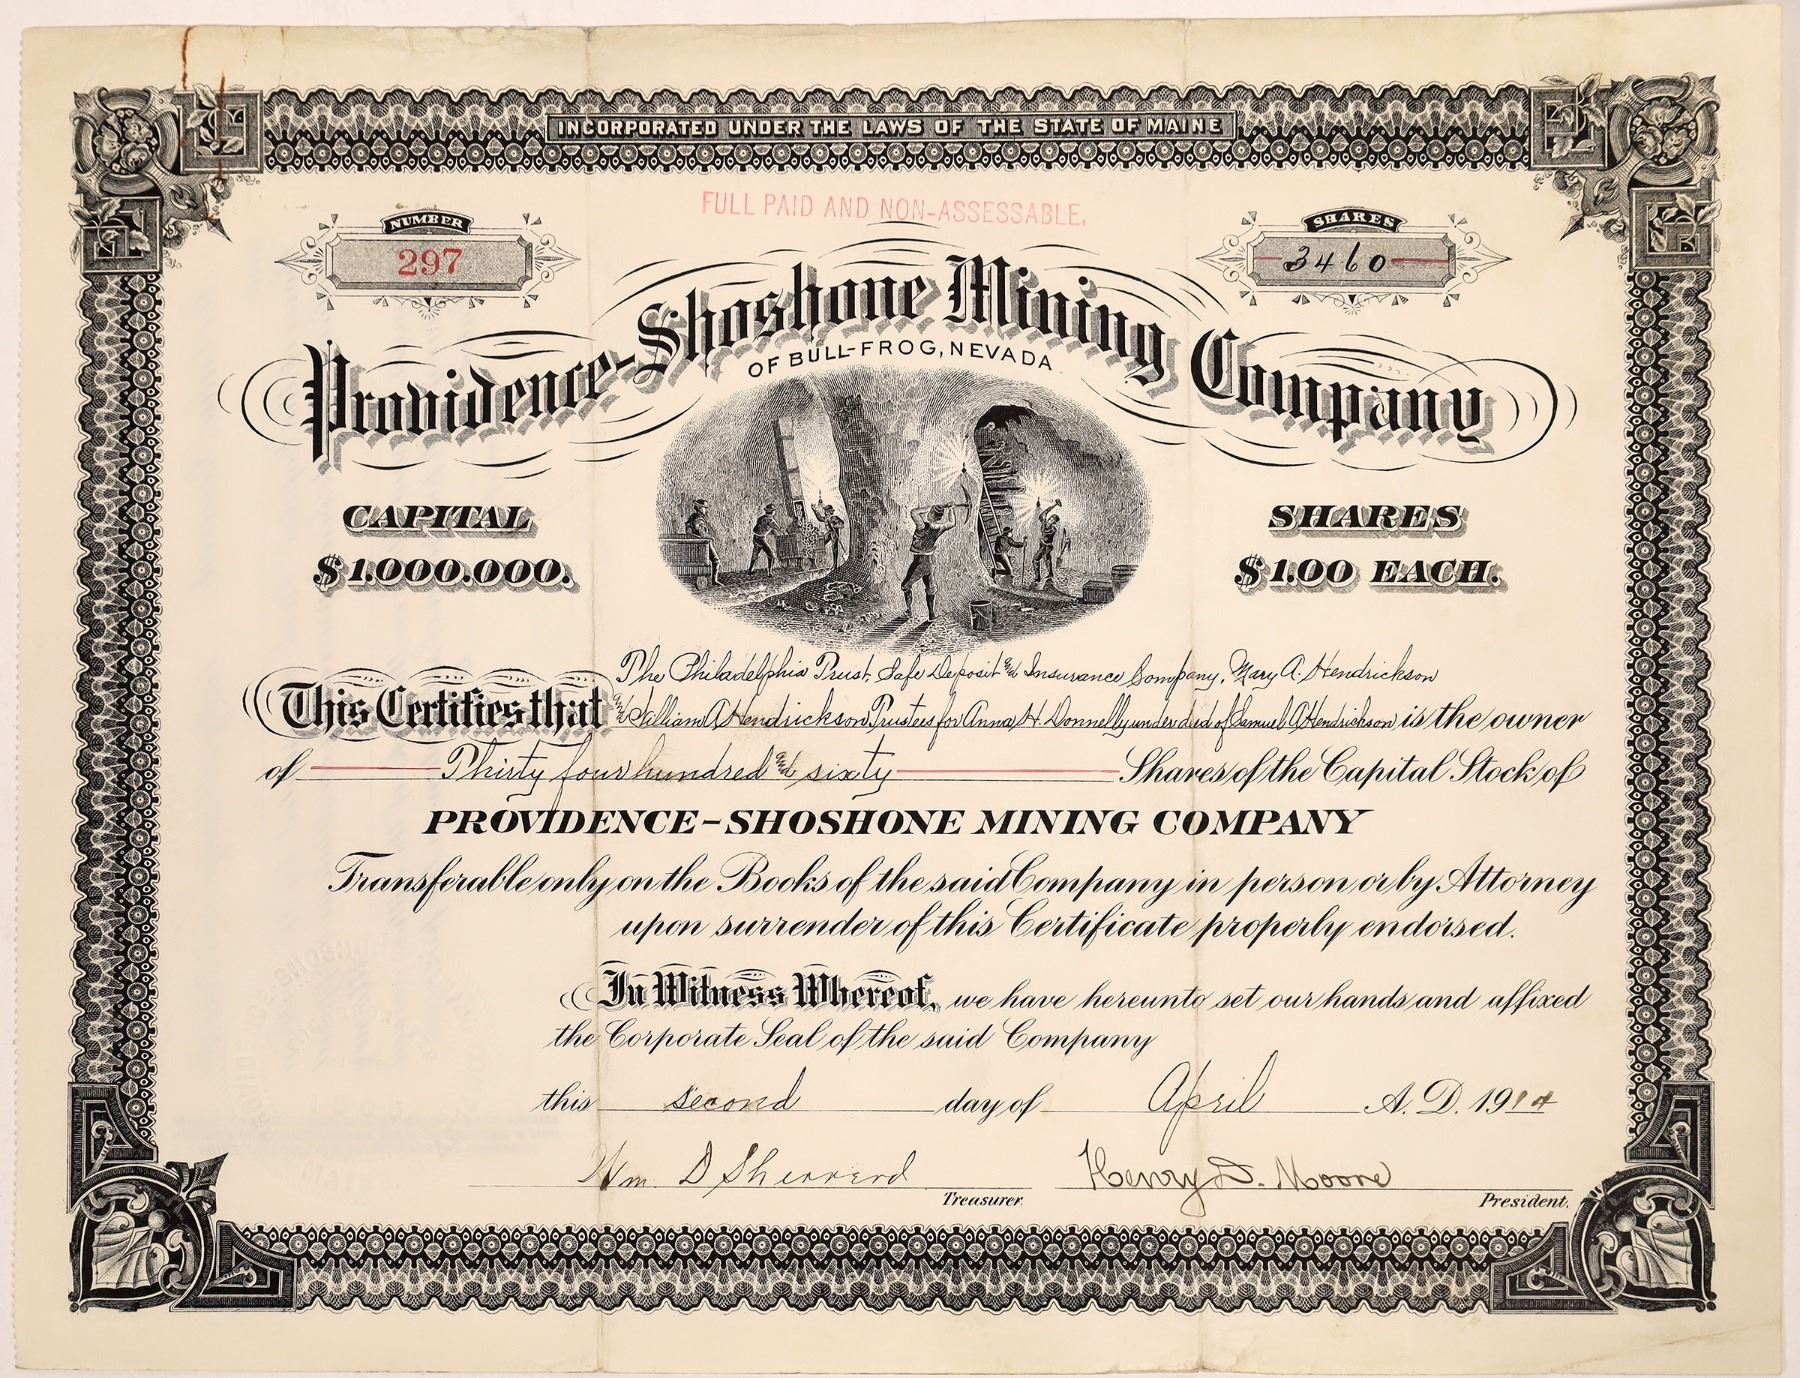 INCORPORATED UNDER THE LAWS OF THE STATE OF MAINE
FULL PAID AND NON-ASSESSABLE.
NUMBER
297
SHARES
3460
Providence-Shoshone Mining Company
OF BULL-FROG, NEVADA
CAPITAL
$1.000.000.
SHARES
$1.00 EACH.
The Philadelphia Trust, Safe Deposit and Insurance Company, Mary A. Hendrickson
This Certifies that and William A Hendrickson Trustees for Anna H. Donnelly under deed of Samuel A Hendrickson is the owner
of Thirty four hundred and sixty Shares of the Capital Stock of
PROVIDENCE-SHOSHONE MINING COMPANY
Transferable only on the Books of the said Company in person or by Attorney
upon surrender of this Certificate properly endorsed.
In Witness Whereof, we have hereunto set our hands and affixed
the Corporate Seal of the said Company
this second day of April A.D. 1914
Wm D Sherrerd
Treasurer
Henry D. Moore
President.